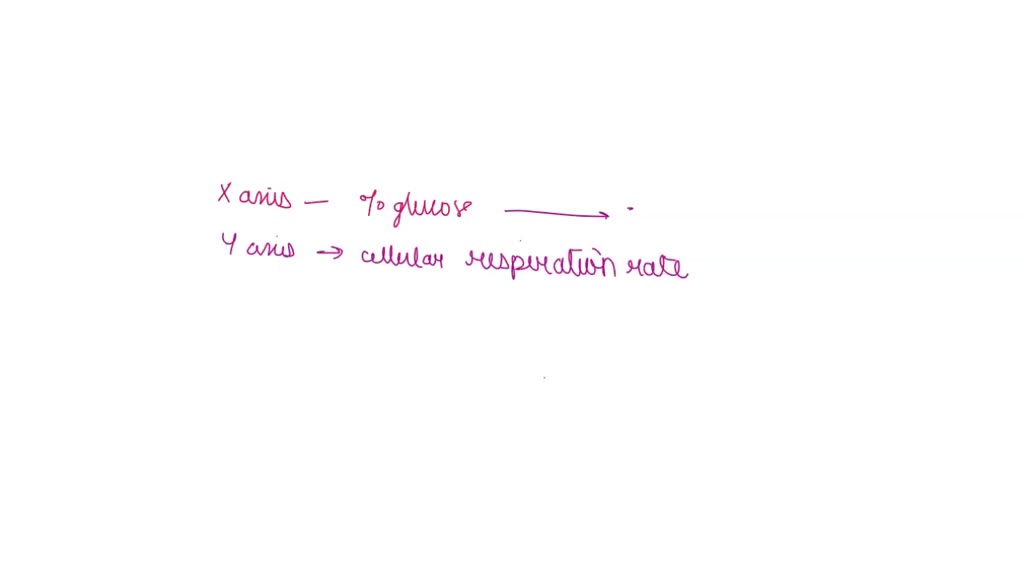 X axis — % glucose ⟶
Y axis → cellular respiration rate